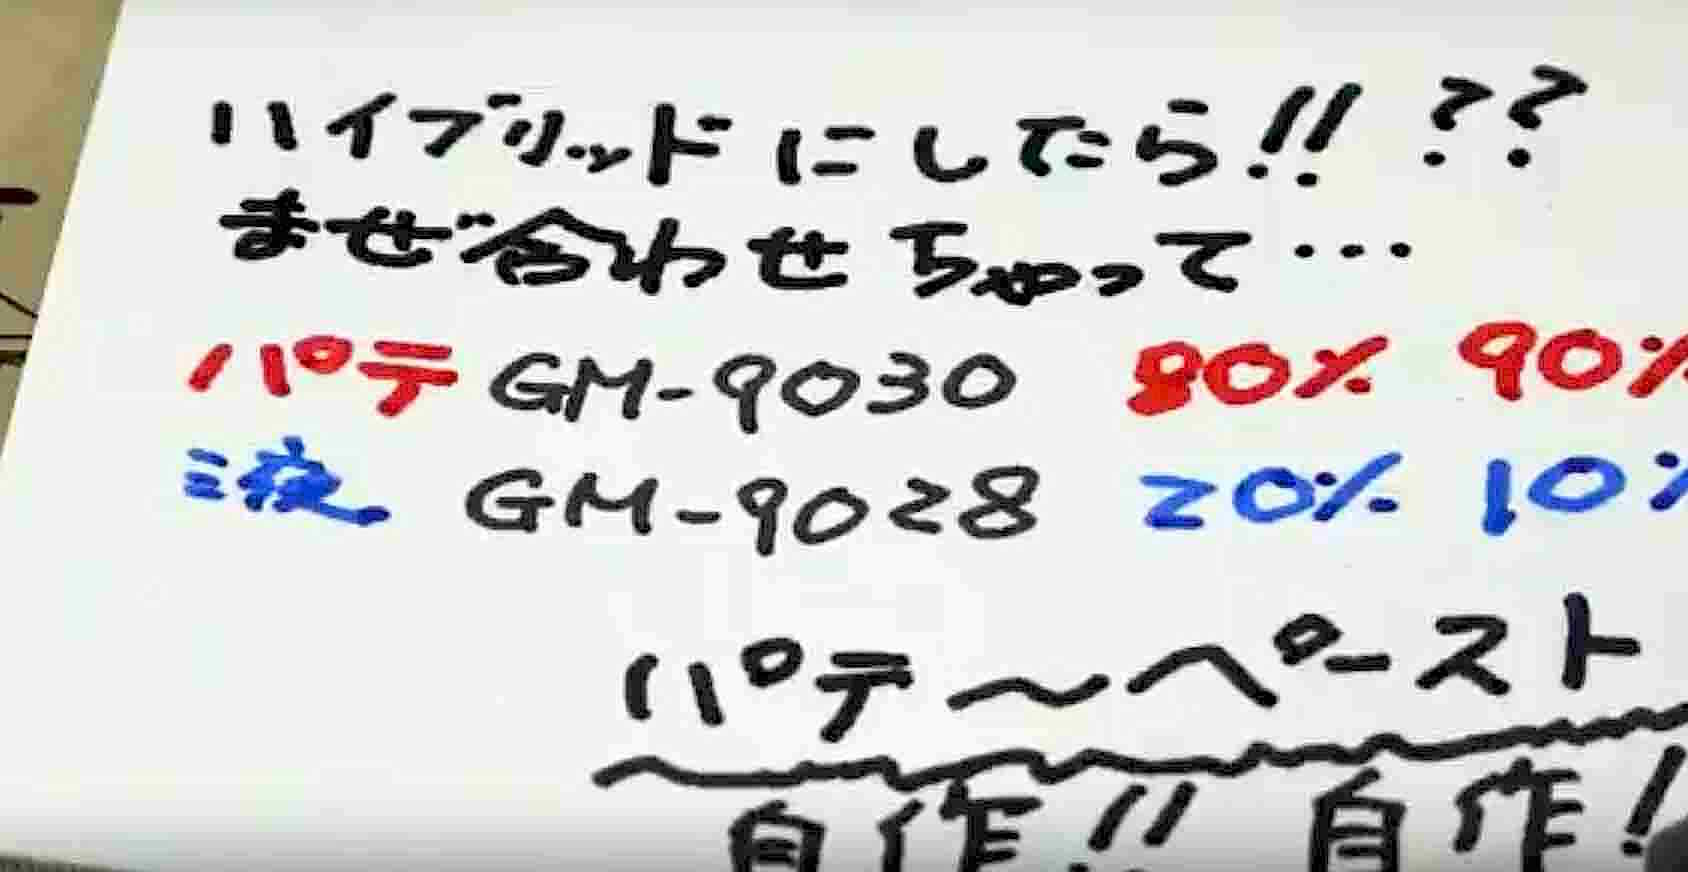 ハイブリッドにしたら!! ??
まぜ合わせちゃって…
パテ GM-9030 80% 90%
液 GM-9028 20% 10%
パテ～ペースト
自作!! 自作!